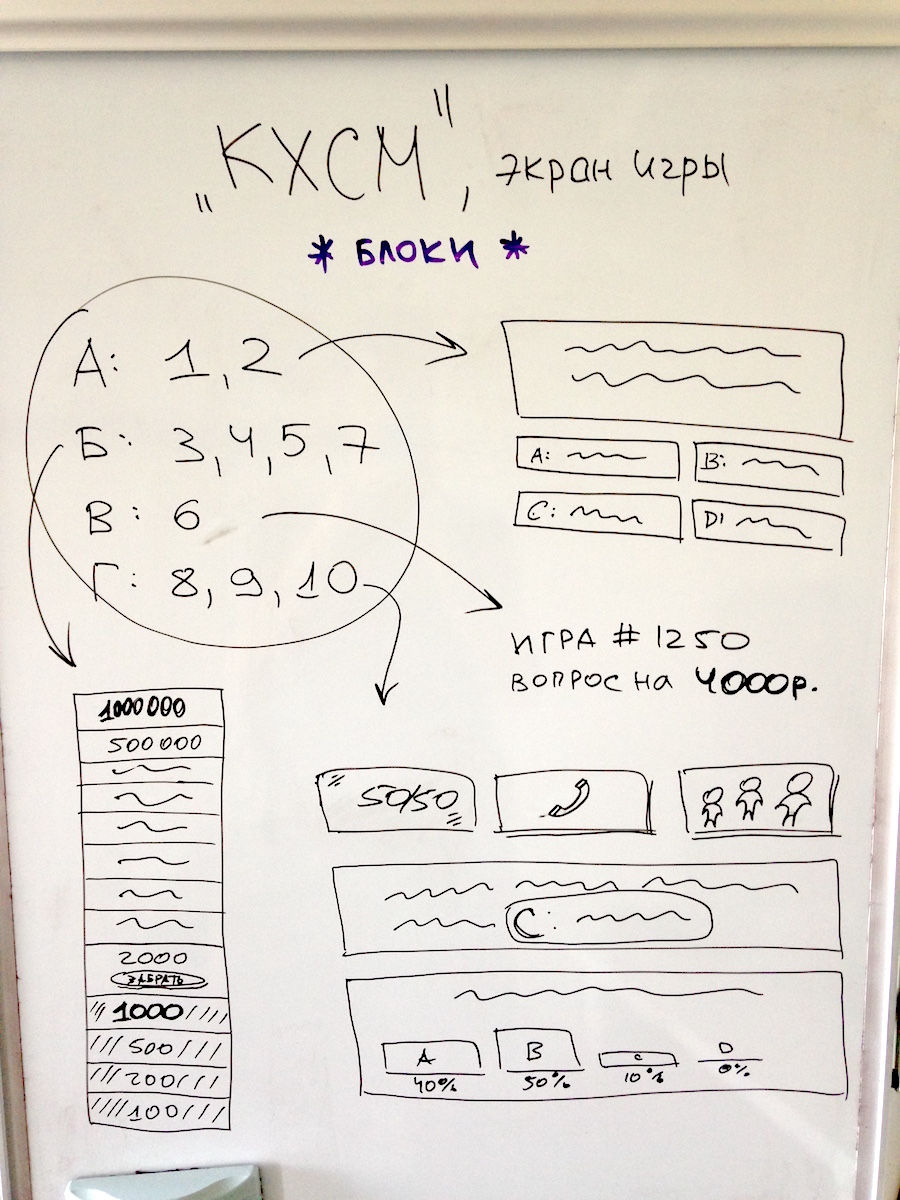 „КХСМ", экран игры
* БЛОКИ *
А: 1, 2
Б: 3, 4, 5, 7
В: 6
Г: 8, 9, 10
A:
B:
C:
D:
ИГРА # 1250
ВОПРОС НА 4000р.
1000 000
500 000
2000
ЗАБРАТЬ
1000
500
200
100
50/50
C:
A
B
C
D
40%
50%
10%
0%